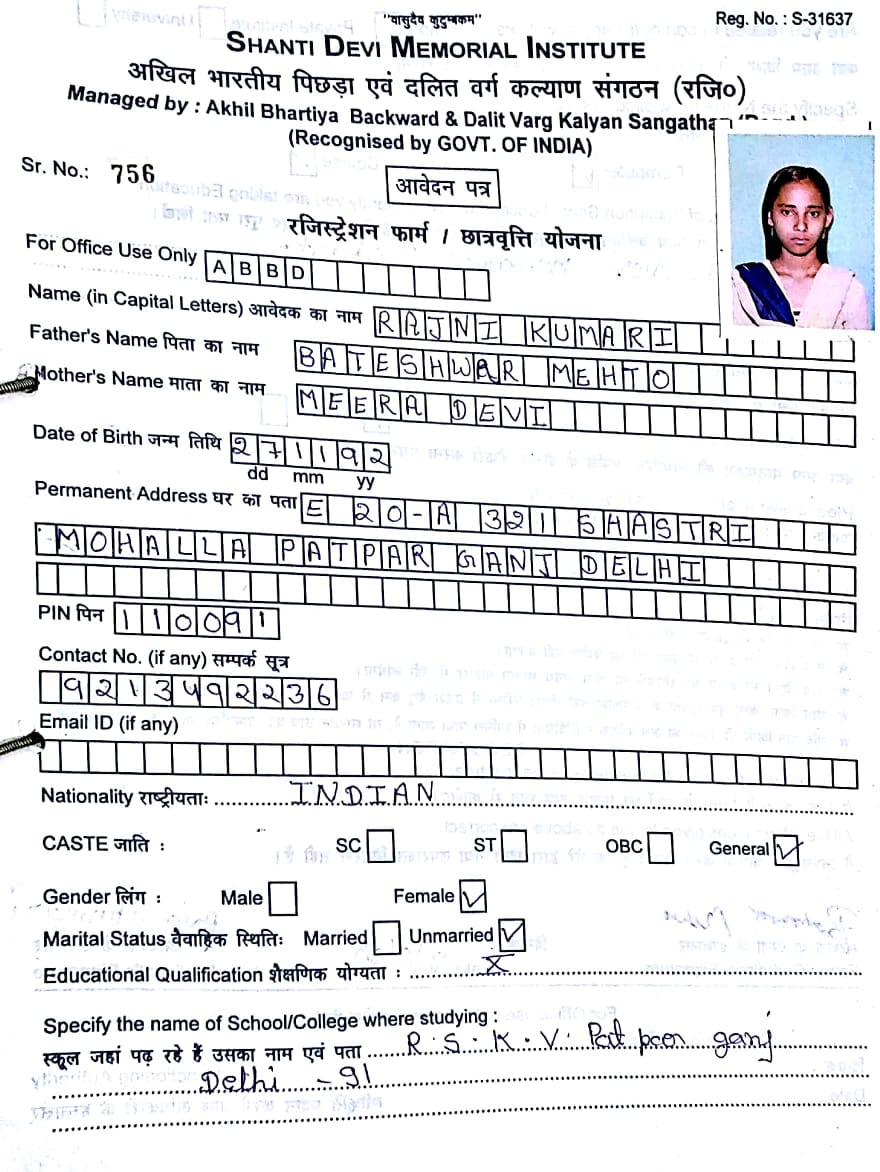 "वासुदैव कुटुम्बकम"
Reg. No. : S-31637
SHANTI DEVI MEMORIAL INSTITUTE
अखिल भारतीय पिछड़ा एवं दलित वर्ग कल्याण संगठन (रजि०)
Managed by : Akhil Bhartiya Backward & Dalit Varg Kalyan Sangathan
(Recognised by GOVT. OF INDIA)
Sr. No.: 756
आवेदन पत्र
रजिस्ट्रेशन फार्म / छात्रवृत्ति योजना
For Office Use Only ABBD
Name (in Capital Letters) आवेदक का नाम RAJNI KUMARI
Father's Name पिता का नाम BATESHWAR MEHTO
Mother's Name माता का नाम MEERA DEVI
Date of Birth जन्म तिथि 271192
dd mm yy
Permanent Address घर का पता E 20-A 321 SHASTRI
MOHALLA PATPAR GANJ DELHI
PIN पिन 110091
Contact No. (if any) सम्पर्क सूत्र
9213492236
Email ID (if any)
Nationality राष्ट्रीयताः INDIAN
CASTE जाति : SC ST OBC General ✓
Gender लिंग : Male Female ✓
Marital Status वैवाहिक स्थितिः Married Unmarried ✓
Educational Qualification शैक्षणिक योग्यता : X
Specify the name of School/College where studying :
स्कूल जहां पढ़ रहे हैं उसका नाम एवं पता R.S.K.V. Pat peer ganj
Delhi - 91